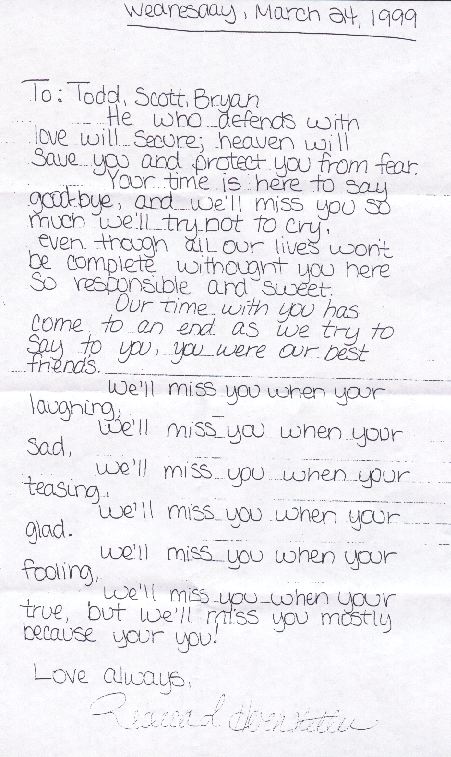 Wednesday, March 24, 1999
To: Todd, Scott, Bryan
He who defends with
love will secure; heaven will
save you and protect you from fear.
Your time is here to say
goodbye, and we'll miss you so
much we'll try not to cry,
even though all our lives won't
be complete withought you here
so responsible and sweet.
Our time with you has
come to an end as we try to
say to you, you were our best
friends.
We'll miss you when your
laughing,
We'll miss you when your
sad,
we'll miss you when your
teasing,
we'll miss you when your
glad.
we'll miss you when your
fooling,
we'll miss you when your
true, but we'll miss you mostly
because your you!
Love always,